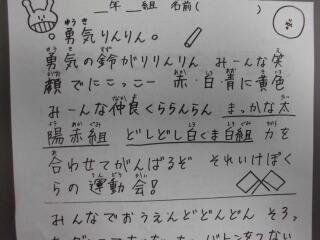 年 組 名前( )
。勇気りんりん。
勇気の鈴がりりんりん みーんな笑
顔でにこっこー 赤・白・青に黄色
みーんな仲良くららんらん まっかな太
陽赤組 どしどし白くま白組 力を
合わせてがんばるぞ それいけぼく
らの運動会!
みんなでおうえんどどんどん そろっ